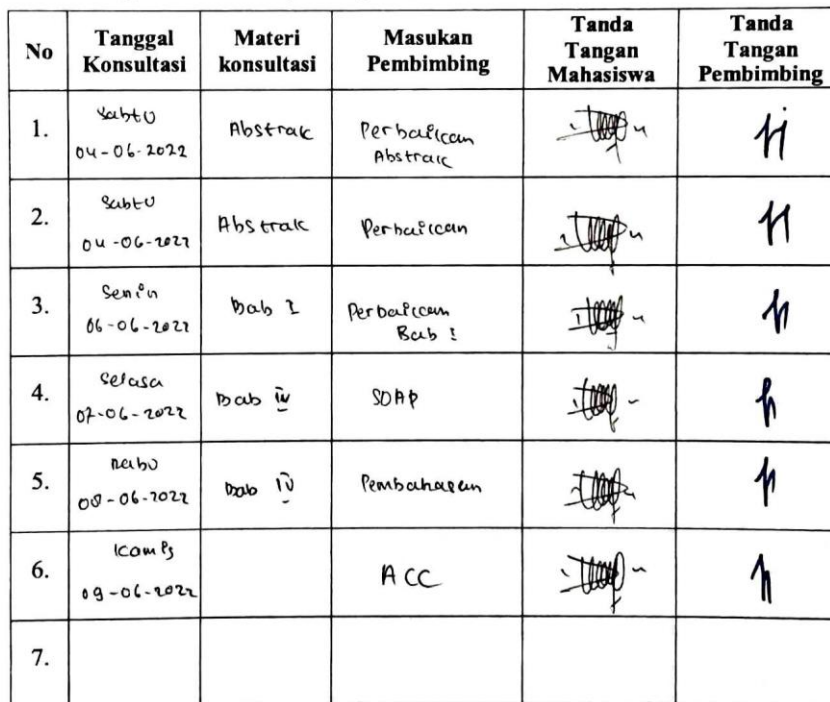 No Tanggal Konsultasi Materi konsultasi Masukan Pembimbing Tanda Tangan Mahasiswa Tanda Tangan Pembimbing
1. Sabtu 04-06-2022 Abstrak Perbaikan Abstrak
2. Sabtu 04-06-2022 Abstrak Perbaikan
3. Senin 06-06-2022 Bab I Perbaikan Bab I
4. Selasa 07-06-2022 Bab IV SOAP
5. Rabu 08-06-2022 Bab IV Pembahasan
6. Kamis 09-06-2022 ACC
7.